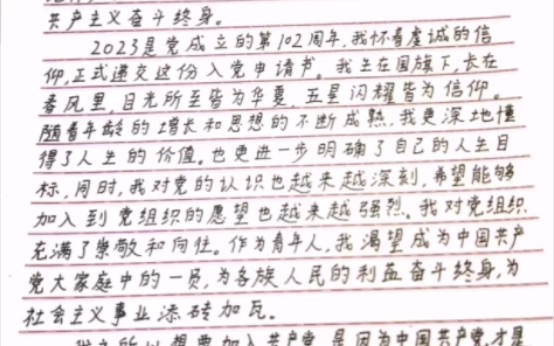 共产主义奋斗终身。
2023是党成立的第102周年,我怀着虔诚的信
仰,正式递交这份入党申请书。我生在国旗下,长在
春风里,目光所至皆为华夏,五星闪耀皆为信仰。
随着年龄的增长和思想的不断成熟,我更深地懂
得了人生的价值。也更进一步明确了自己的人生目
标,同时,我对党的认识也越来越深刻,希望能够
加入到党组织的愿望也越来越强烈。我对党组织
充满了崇敬和向往。作为青年人,我渴望成为中国共产
党大家庭中的一员,为各族人民的利益奋斗终身,为
社会主义事业添砖加瓦。
我之所以想要加入共产党,是因为中国共产党,才是